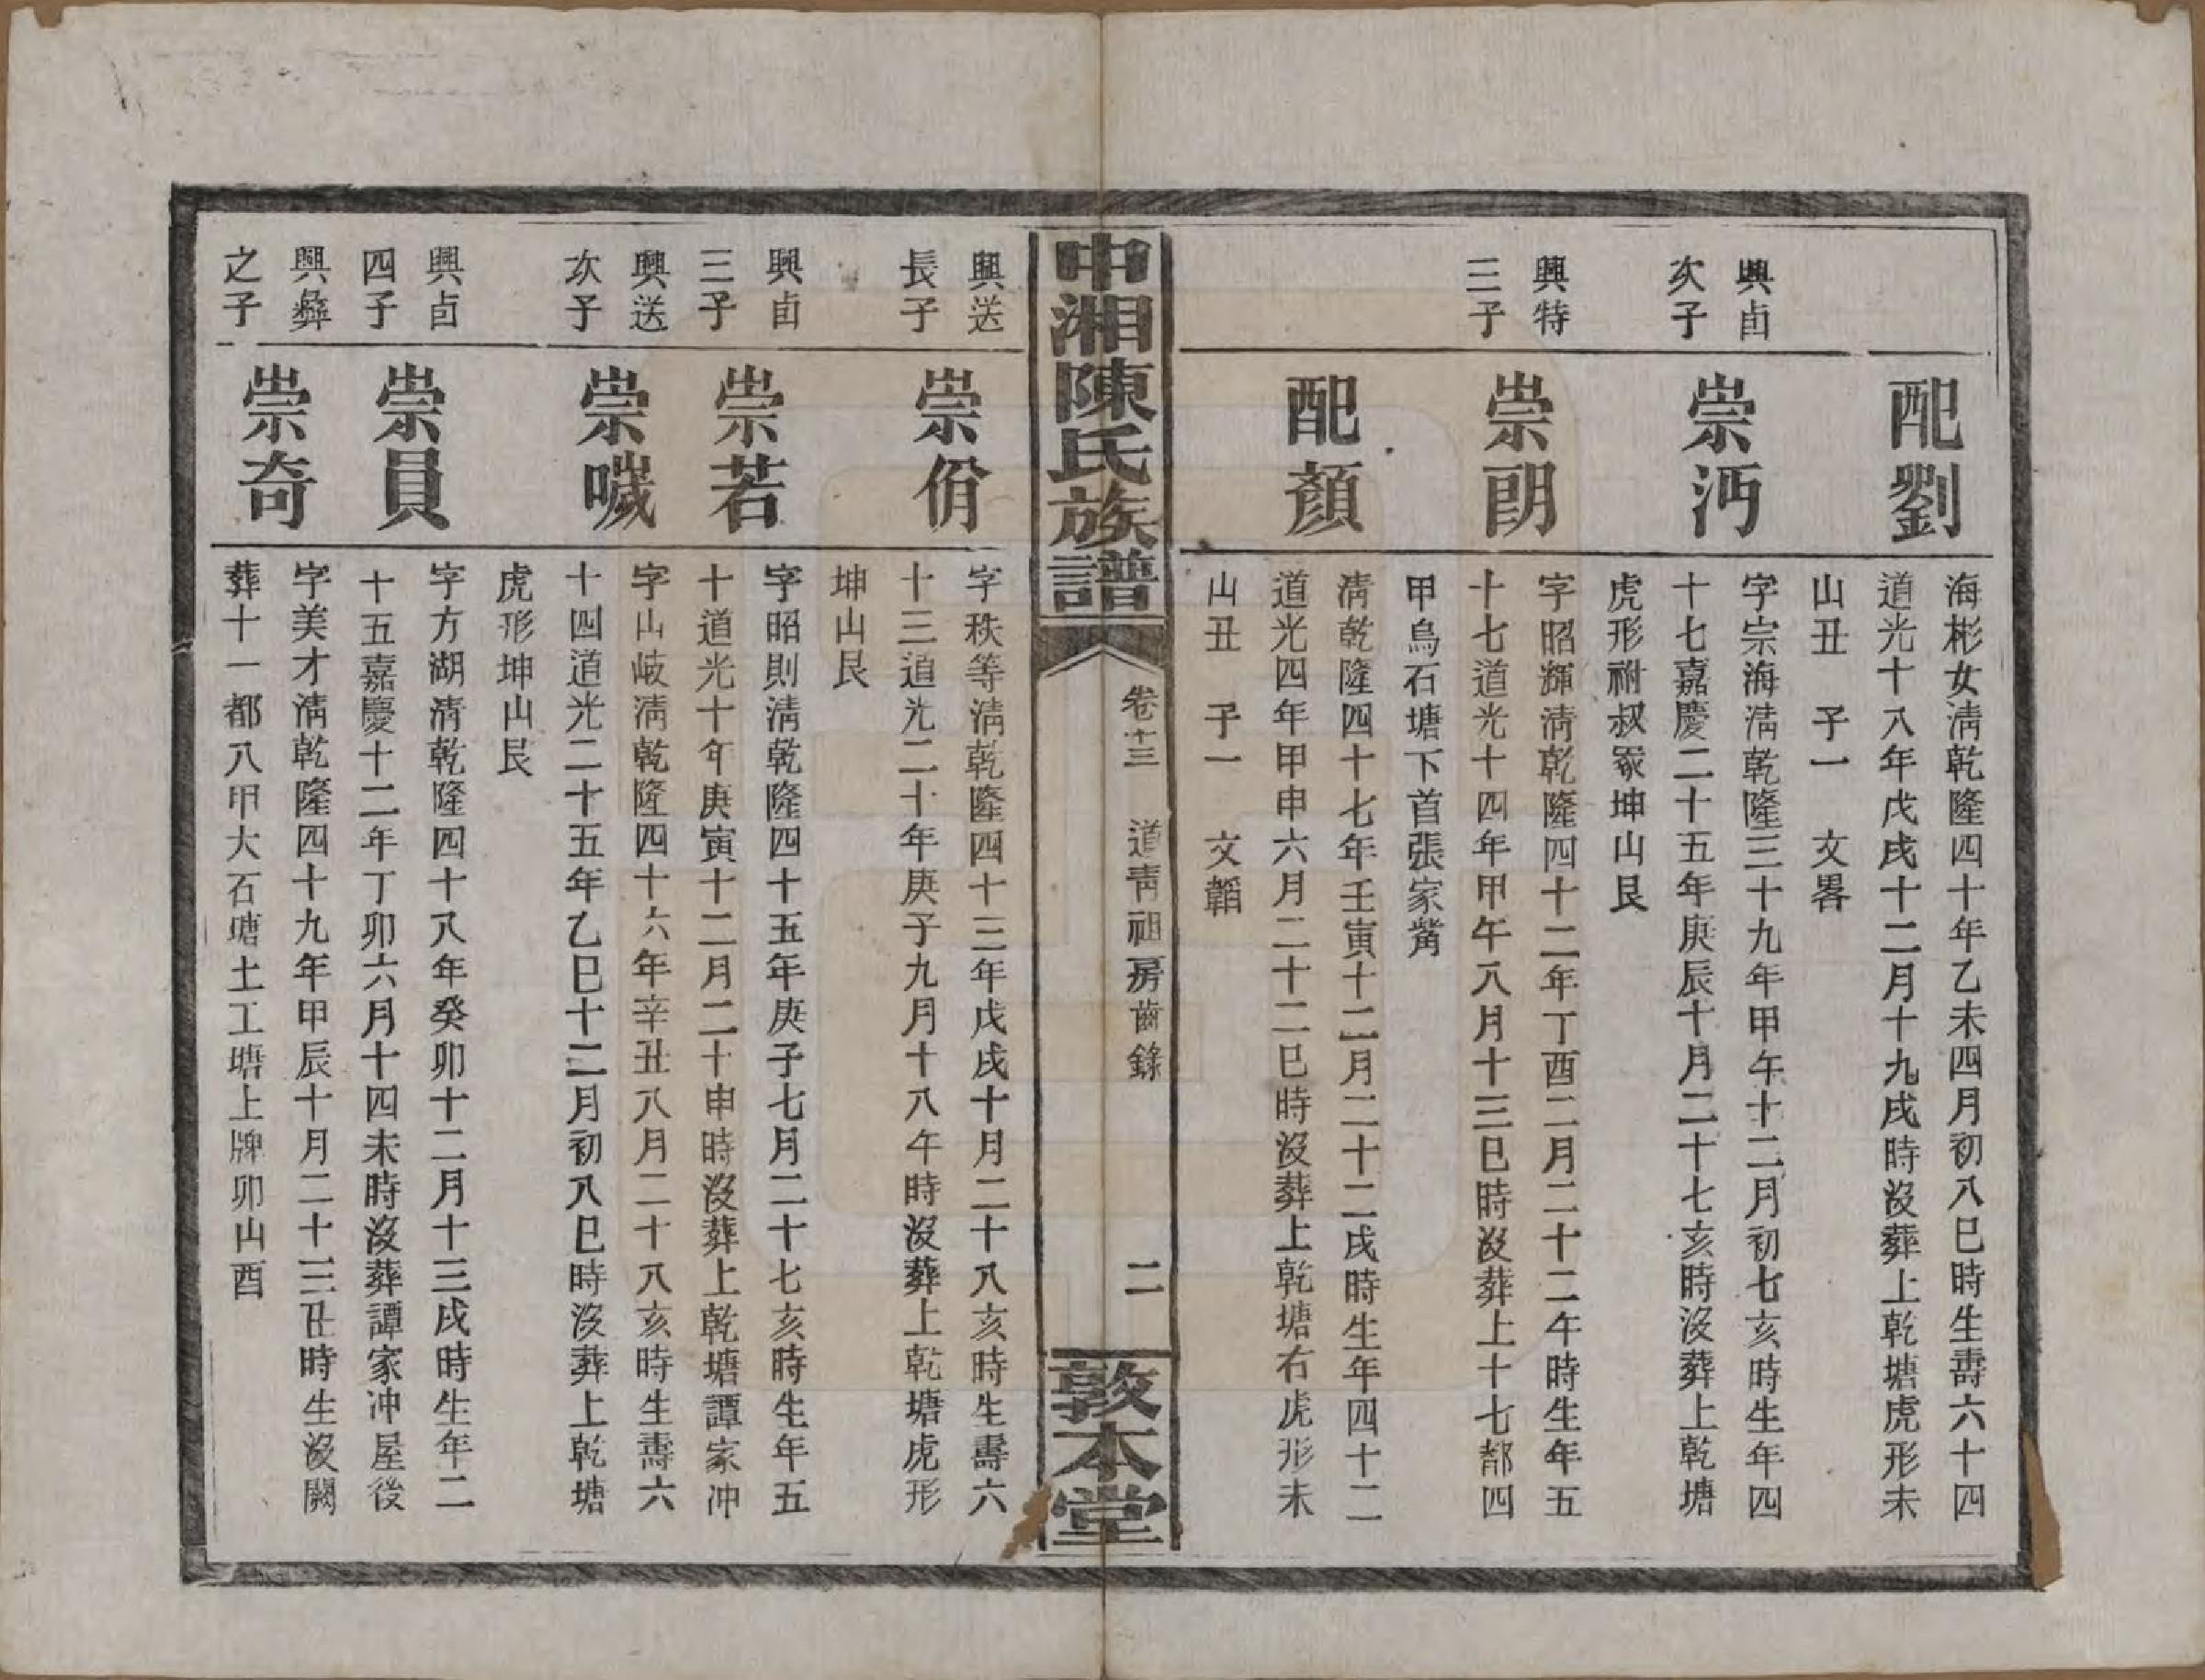 配劉
海彬女淸乾隆四十年乙未四月初八巳時生壽六十四
道光十八年戊戌十二月十九戌時沒葬上乾塘虎形未
山丑　子一　文畧
興卣
次子
崇沔
字宗海淸乾隆三十九年甲午十二月初七亥時生年四
十七嘉慶二十五年庚辰十月二十七亥時沒葬上乾塘
虎形祔叔冢坤山艮
興特
三子
崇朗
字昭輝淸乾隆四十二年丁酉二月二十二午時生年五
十七道光十四年甲午八月十三巳時沒葬上十七都四
甲烏石塘下首張家觜
配顏
淸乾隆四十七年壬寅十二月二十二戌時生年四十二
道光四年甲申六月二十二巳時沒葬上乾塘右虎形未
山丑　子一　文韜
中湘陳氏族譜
卷十三　道靑祖房齒錄
二
敦本堂
興送
長子
崇佾
字秩等淸乾隆四十三年戊戌十月二十八亥時生壽六
十三道光二十年庚子九月十八午時沒葬上乾塘虎形
坤山艮
興卣
三子
崇若
字昭則淸乾隆四十五年庚子七月二十七亥時生年五
十道光十年庚寅十二月二十申時沒葬上乾塘譚家冲
興送
次子
崇噦
字山岐淸乾隆四十六年辛丑八月二十八亥時生壽六
十四道光二十五年乙巳十二月初八巳時沒葬上乾塘
虎形坤山艮
興卣
四子
崇員
字方湖淸乾隆四十八年癸卯十二月十三戌時生年二
十五嘉慶十二年丁卯六月十四未時沒葬譚家冲屋後
興彝
之子
崇奇
字美才淸乾隆四十九年甲辰十月二十三丑時生沒闕
葬十一都八甲大石塘土工塘上牌卯山酉